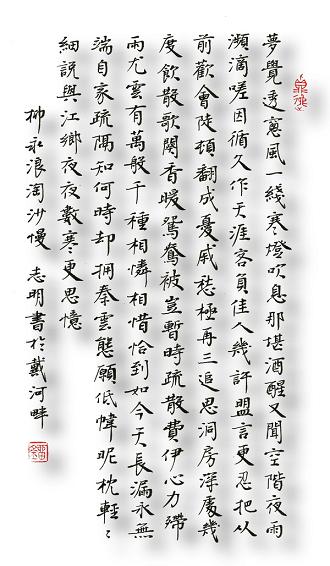 夢覺透窻風一綫寒燈吹息那堪酒醒又聞空階夜雨
瀕滴嗟因循久作天涯客負佳人幾許盟言更忍把從
前歡會陡頓翻成憂戚愁極再三追思洞房深處幾
度飲散歌闌香暖鴛鴦被豈暫時疏散費伊心力殢
雨尤雲有萬般千種相憐相惜恰到如今天長漏永無
端自家疏隔知何時却拥秦雲態願低幃昵枕輕〻
細説與江鄉夜夜數寒更思憶
柳永浪淘沙慢 志明書於戴河畔